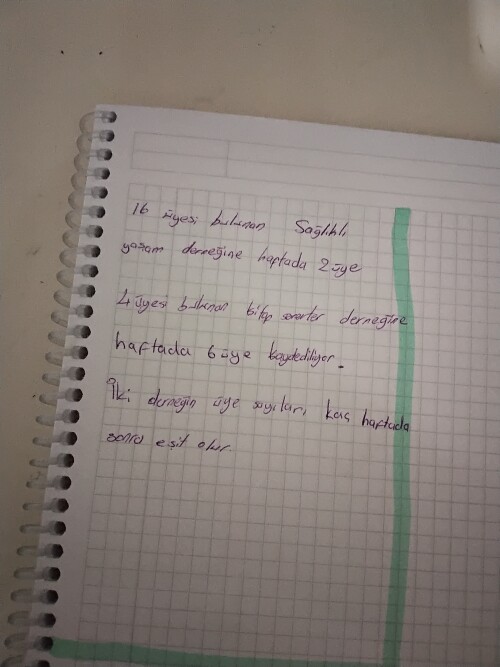 16 üyesi bulunan Sağlıklı
yaşam derneğine haftada 2 üye
4 üyesi bulunan kitap severler derneğine
haftada 6 üye kaydediliyor.
İki derneğin üye sayıları kaç haftada
sonra eşit olur.